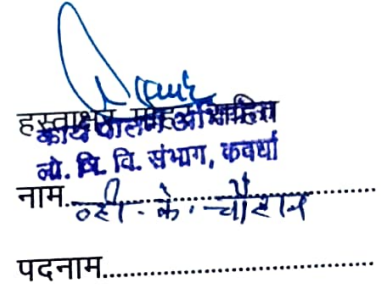 हस्ताक्षर मोहर सहित
कार्यपालन अभियंता
लो. नि. वि. संभाग, कवर्धा
नाम.......व्ही. के. चौहान.......
पदनाम.......................................